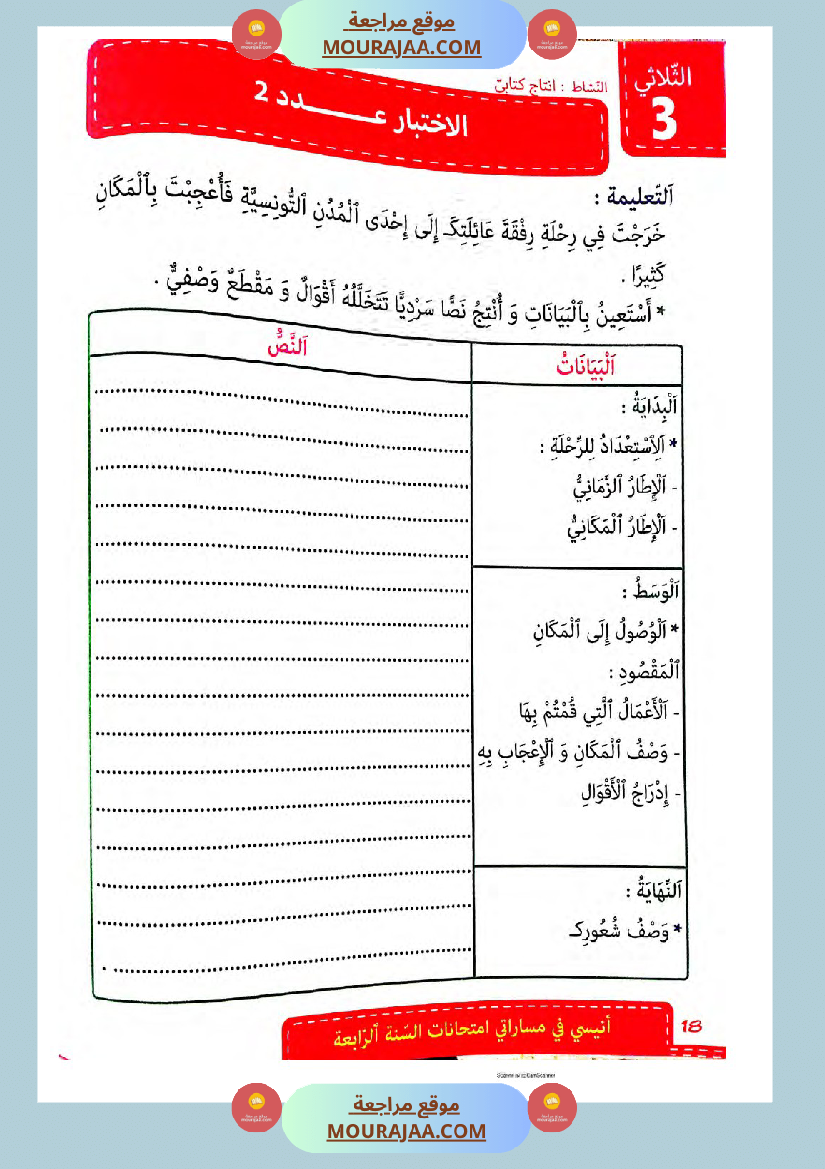 موقع مراجعة
MOURAJAA.COM
الثّلاثي
3
النّشاط : انتاج كتابيّ
الاختبار عـــــــدد 2
اَلتّعليمة :
خَرَجْتَ فِي رِحْلَةٍ رِفْقَةَ عَائِلَتِكَـ إِلَى إِحْدَى ٱلْمُدُنِ ٱلتُّونِسِيَّةِ فَأُعْجِبْتَ بِٱلْمَكَانِ
كَثِيرًا .
* أَسْتَعِينُ بِٱلْبَيَانَاتِ وَ أُنْتِجُ نَصًّا سَرْدِيًّا تَتَخَلَّلُهُ أَقْوَالٌ وَ مَقْطَعٌ وَصْفِيٌّ .
اَلْبَيَانَاتُ
اَلنَّصُّ
اَلْبِدَايَةُ :
* اَلِٱسْتِعْدَادُ لِلرِّحْلَةِ :
- اَلْإِطَارُ ٱلزَّمَانِيُّ
- اَلْإِطَارُ ٱلْمَكَانِيُّ
اَلْوَسَطُ :
* اَلْوُصُولُ إِلَى ٱلْمَكَانِ
ٱلْمَقْصُودِ :
- اَلْأَعْمَالُ ٱلَّتِي قُمْتُمْ بِهَا
- وَصْفُ ٱلْمَكَانِ وَ ٱلْإِعْجَابِ بِهِ
- إِدْرَاجُ ٱلْأَقْوَالِ
اَلنِّهَايَةُ :
* وَصْفُ شُعُورِكـ
18
أنيسي في مساراتي امتحانات السّنة ٱلرّابعة
موقع مراجعة
MOURAJAA.COM